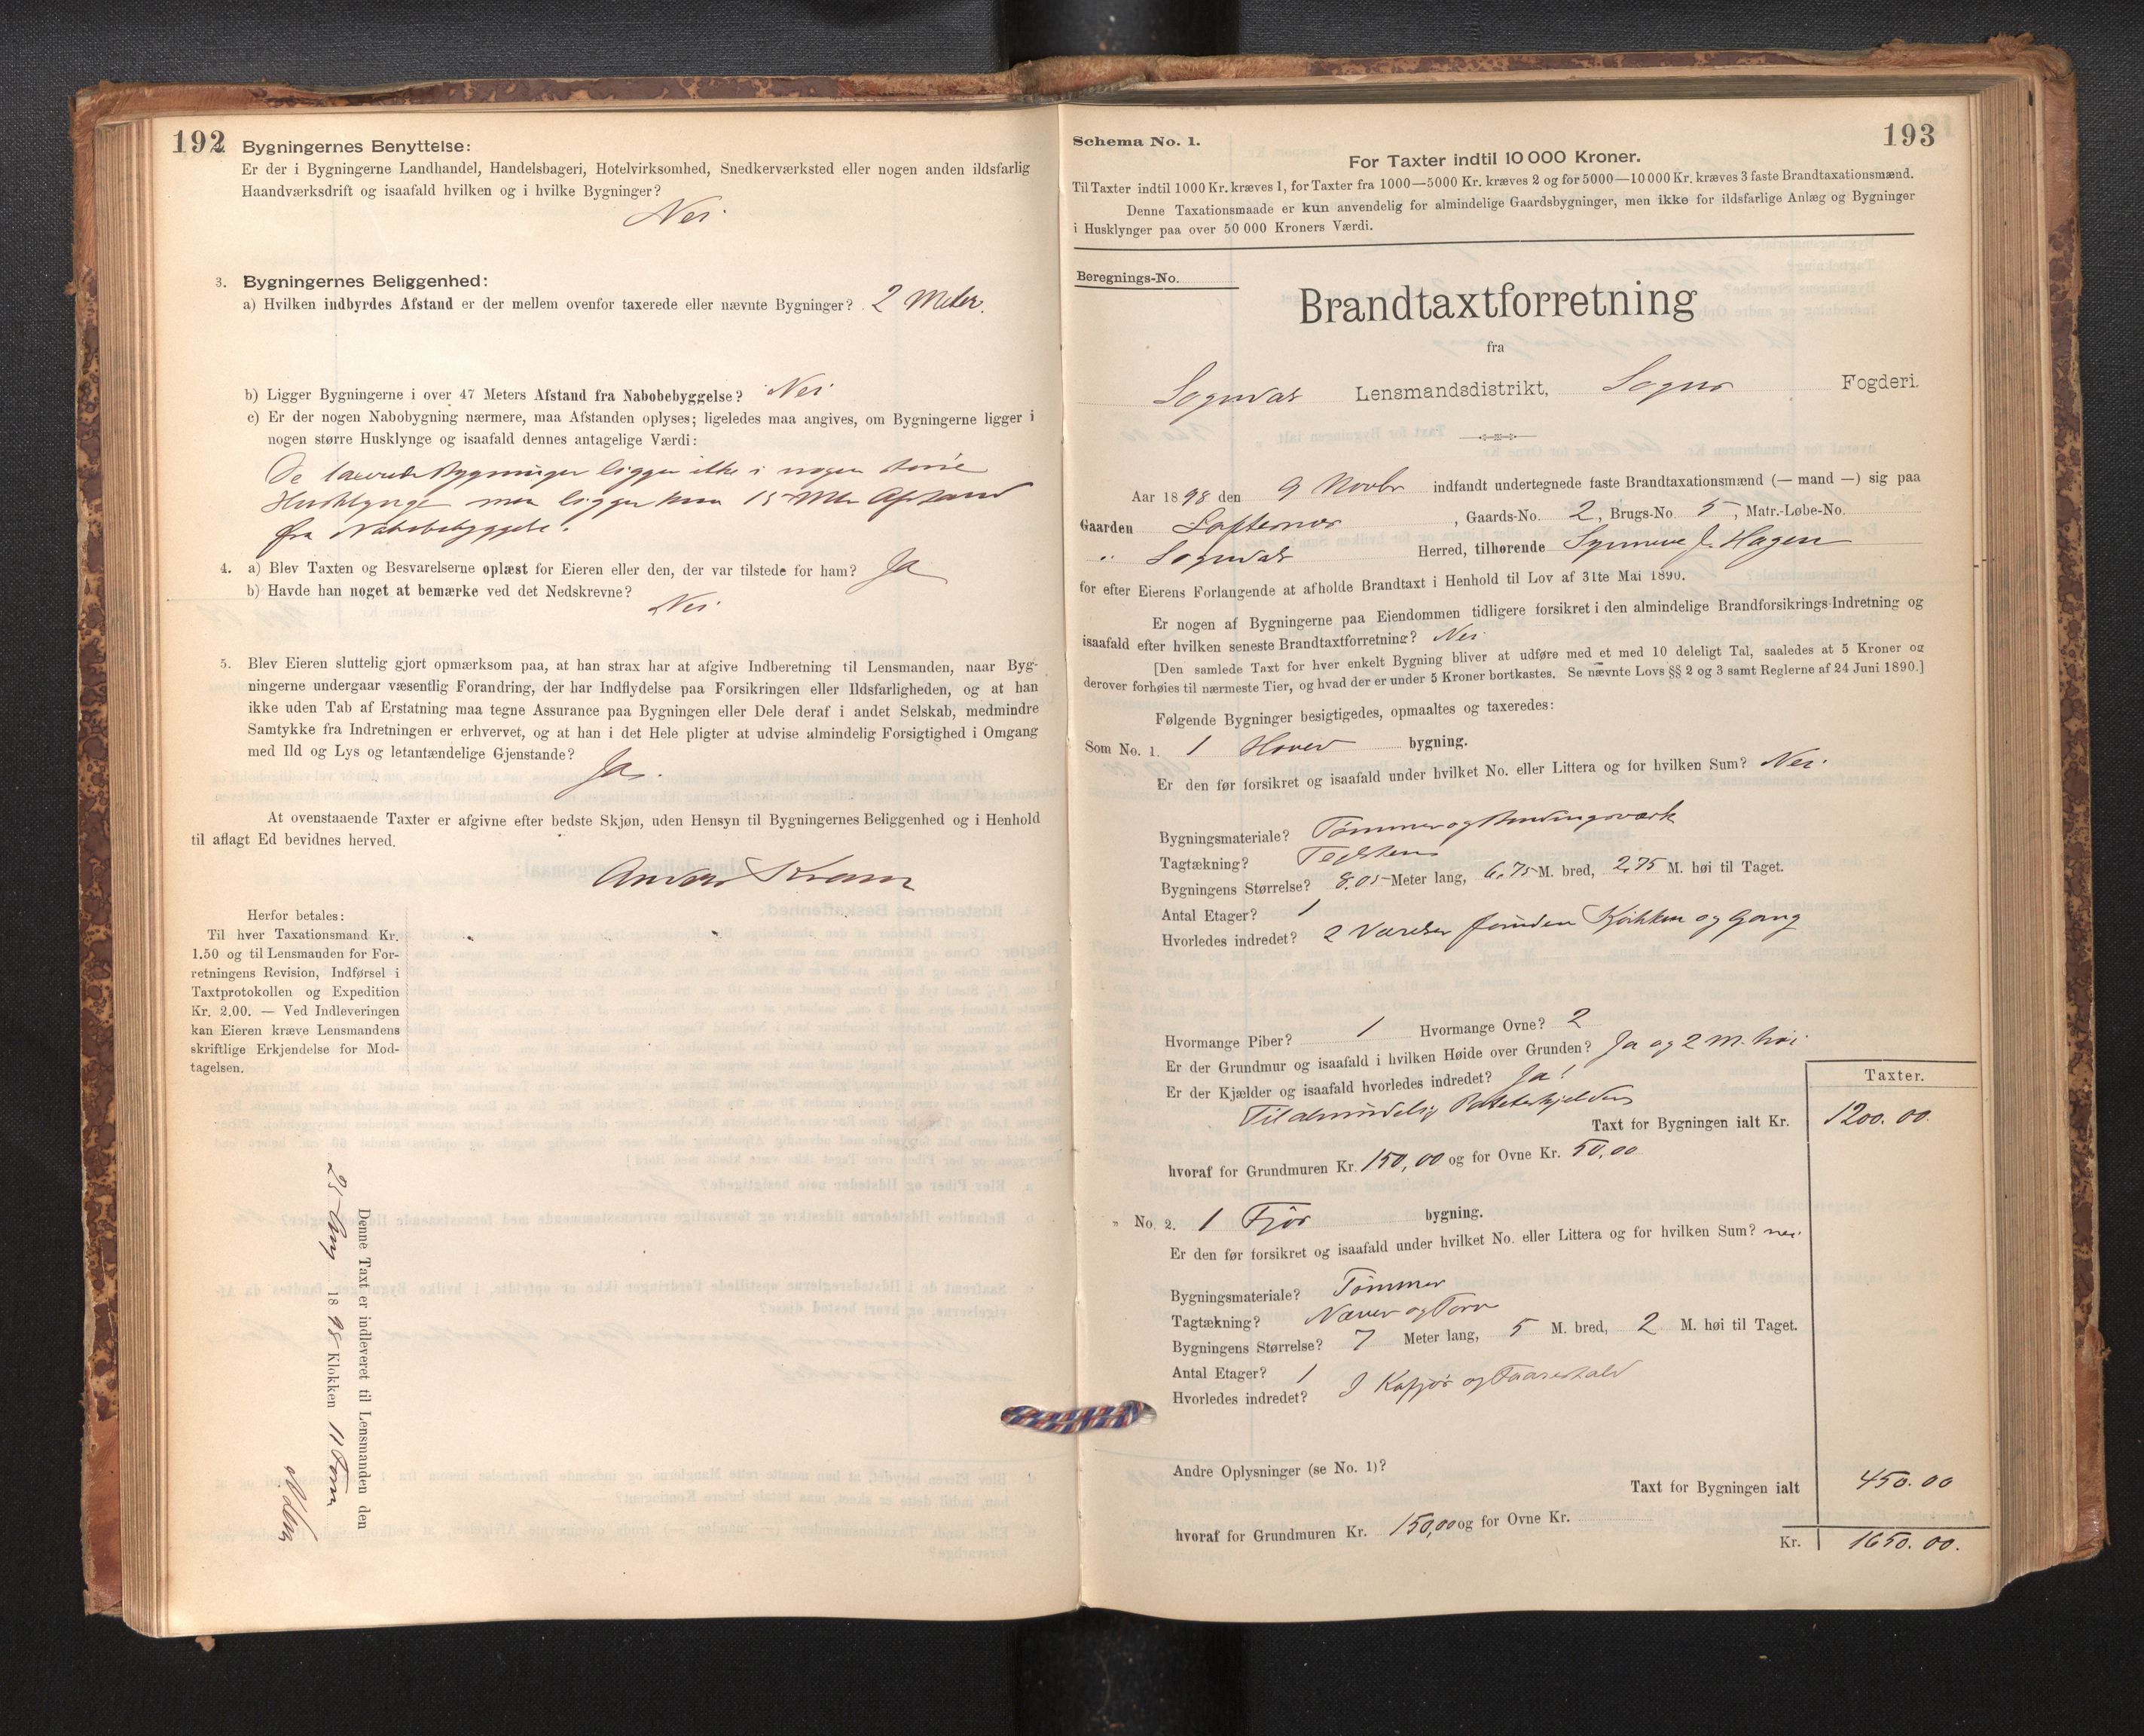 192
Bygningernes Benyttelse:
Er der i Bygningerne Landhandel, Handelsbageri, Hotelvirksomhed, Snedkerværksted eller nogen anden ildsfarlig
Haandværksdrift og isaafald hvilken og i hvilke Bygninger?
Nei
3. Bygningernes Beliggenhed:
a) Hvilken indbyrdes Afstand er der mellem ovenfor taxerede eller nævnte Bygninger? 2 Meter.
b) Ligger Bygningerne i over 47 Meters Afstand fra Nabobebyggelse? Nei
c) Er der nogen Nabobygning nærmere, maa Afstanden oplyses; ligeledes maa angives, om Bygningerne ligger i
nogen større Husklynge og isaafald dennes antagelige Værdi:
De taxerede Bygninger ligger ikke i nogen større
Husklynge men ligger kun 15 Mtr Afstand
fra Nabobebyggelse.
4. a) Blev Taxten og Besvarelserne oplæst for Eieren eller den, der var tilstede for ham? Ja
b) Havde han noget at bemærke ved det Nedskrevne?
Nei
5. Blev Eieren sluttelig gjort opmærksom paa, at han strax har at afgive Indberetning til Lensmanden, naar Byg-
ningerne undergaar væsentlig Forandring, der har Indflydelse paa Forsikringen eller Ildsfarligheden, og at han
ikke uden Tab af Erstatning maa tegne Assurance paa Bygningen eller Dele deraf i andet Selskab, medmindre
Samtykke fra Indretningen er erhvervet, og at han i det Hele pligter at udvise almindelig Forsigtighed i Omgang
med Ild og Lys og letantændelige Gjenstande?
Ja.
At ovenstaaende Taxter er afgivne efter bedste Skjøn, uden Hensyn til Bygningernes Beliggenhed og i Henhold
til aflagt Ed bevidnes herved.
Anders Kram
Herfor betales:
Til hver Taxationsmand Kr.
1.50 og til Lensmanden for For-
retningens Revision, Indførsel i
Taxtprotokollen og Expedition
Kr. 2.00. — Ved Indleveringen
kan Eieren kræve Lensmandens
skriftlige Erkjendelse for Mod-
tagelsen.
Denne Taxt er indleveret til Lensmanden den
25 1898 Klokken 11 Form
193
Schema No. 1.
For Taxter indtil 10 000 Kroner.
Til Taxter indtil 1000 Kr. kræves 1, for Taxter fra 1000—5000 Kr. kræves 2 og for 5000—10 000 Kr. kræves 3 faste Brandtaxationsmænd.
Denne Taxationsmaade er kun anvendelig for almindelige Gaardsbygninger, men ikke for ildsfarlige Anlæg og Bygninger
i Husklynger paa over 50 000 Kroners Værdi.
Beregnings-No.
Brandtaxtforretning
fra
Sogndal Lensmandsdistrikt, Sogns Fogderi.
Aar 1898 den 9 Novbr indfandt undertegnede faste Brandtaxationsmænd (— mand —) sig paa
Gaarden Loftesnes, Gaards-No. 2, Brugs-No. 5, Matr.-Løbe-No.
" Sogndal Herred, tilhørende Synneve J. Hagen
for efter Eierens Forlangende at afholde Brandtaxt i Henhold til Lov af 31te Mai 1890.
Er nogen af Bygningerne paa Eiendommen tidligere forsikret i den almindelige Brandforsikrings-Indretning og
isaafald efter hvilken seneste Brandtaxtforretning? Nei
[Den samlede Taxt for hver enkelt Bygning bliver at udføre med et med 10 deleligt Tal, saaledes at 5 Kroner og
derover forhøies til nærmeste Tier, og hvad der er under 5 Kroner bortkastes. Se nævnte Lovs §§ 2 og 3 samt Reglerne af 24 Juni 1890.]
Følgende Bygninger besigtigedes, opmaaltes og taxeredes:
Som No. 1. 1 Hoved bygning.
Er den før forsikret og isaafald under hvilket No. eller Littera og for hvilken Sum? Nei.
Bygningsmateriale? Tømmer og Bindingsværk
Tagtækning? Teglsten
Bygningens Størrelse? 8.05 Meter lang, 6.75 M. bred, 2.75 M. høi til Taget.
Antal Etager? 1
Hvorledes indredet? 2 Værelser foruden Kjøkken og Gang
Hvormange Piber? 1 Hvormange Ovne? 2
Er der Grundmur og isaafald i hvilken Høide over Grunden? Ja og 2 M. høi.
Er der Kjælder og isaafald hvorledes indredet? Ja!
Til almindelig Potetkjelder
Taxter.
Taxt for Bygningen ialt Kr. 1200.00.
hvoraf for Grundmuren Kr. 150,00 og for Ovne Kr. 50,00
" No. 2. 1 Fjøs bygning.
Er den før forsikret og isaafald under hvilket No. eller Littera og for hvilken Sum? nei.
Bygningsmateriale? Tømmer
Tagtækning? Næver og Torv
Bygningens Størrelse? 7 Meter lang, 5 M. bred, 2 M. høi til Taget.
Antal Etager? 1
Hvorledes indredet? I Kofjøs og Faarestald
Andre Oplysninger (se No. 1)?
Taxt for Bygningen ialt 450.00
hvoraf for Grundmuren Kr. 150,00 og for Ovne Kr.
Kr. 1650.00.